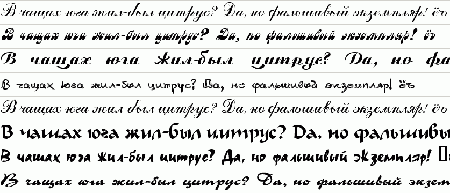 В чащах юга жил-был цитрус? Да, но фальшивый экземпляр! ёъ
В чащах юга жил-был цитрус? Да, но фальшивый экземпляр! ёъ
В чащах юга жил-был цитрус? Да, но фа
В чащах юга жил-был цитрус? Да, но фальшивый экземпляр! ёъ
В чащах юга жил-был цитрус? Да, но фальшивый экземпляр! ёъ
В чащах юга жил-был цитрус? Да, но фальшивы
В чащах юга жил-был цитрус? Да, но фальшивый экземпляр!
В чащах юга жил-был цитрус? Да, но фальшивый экз